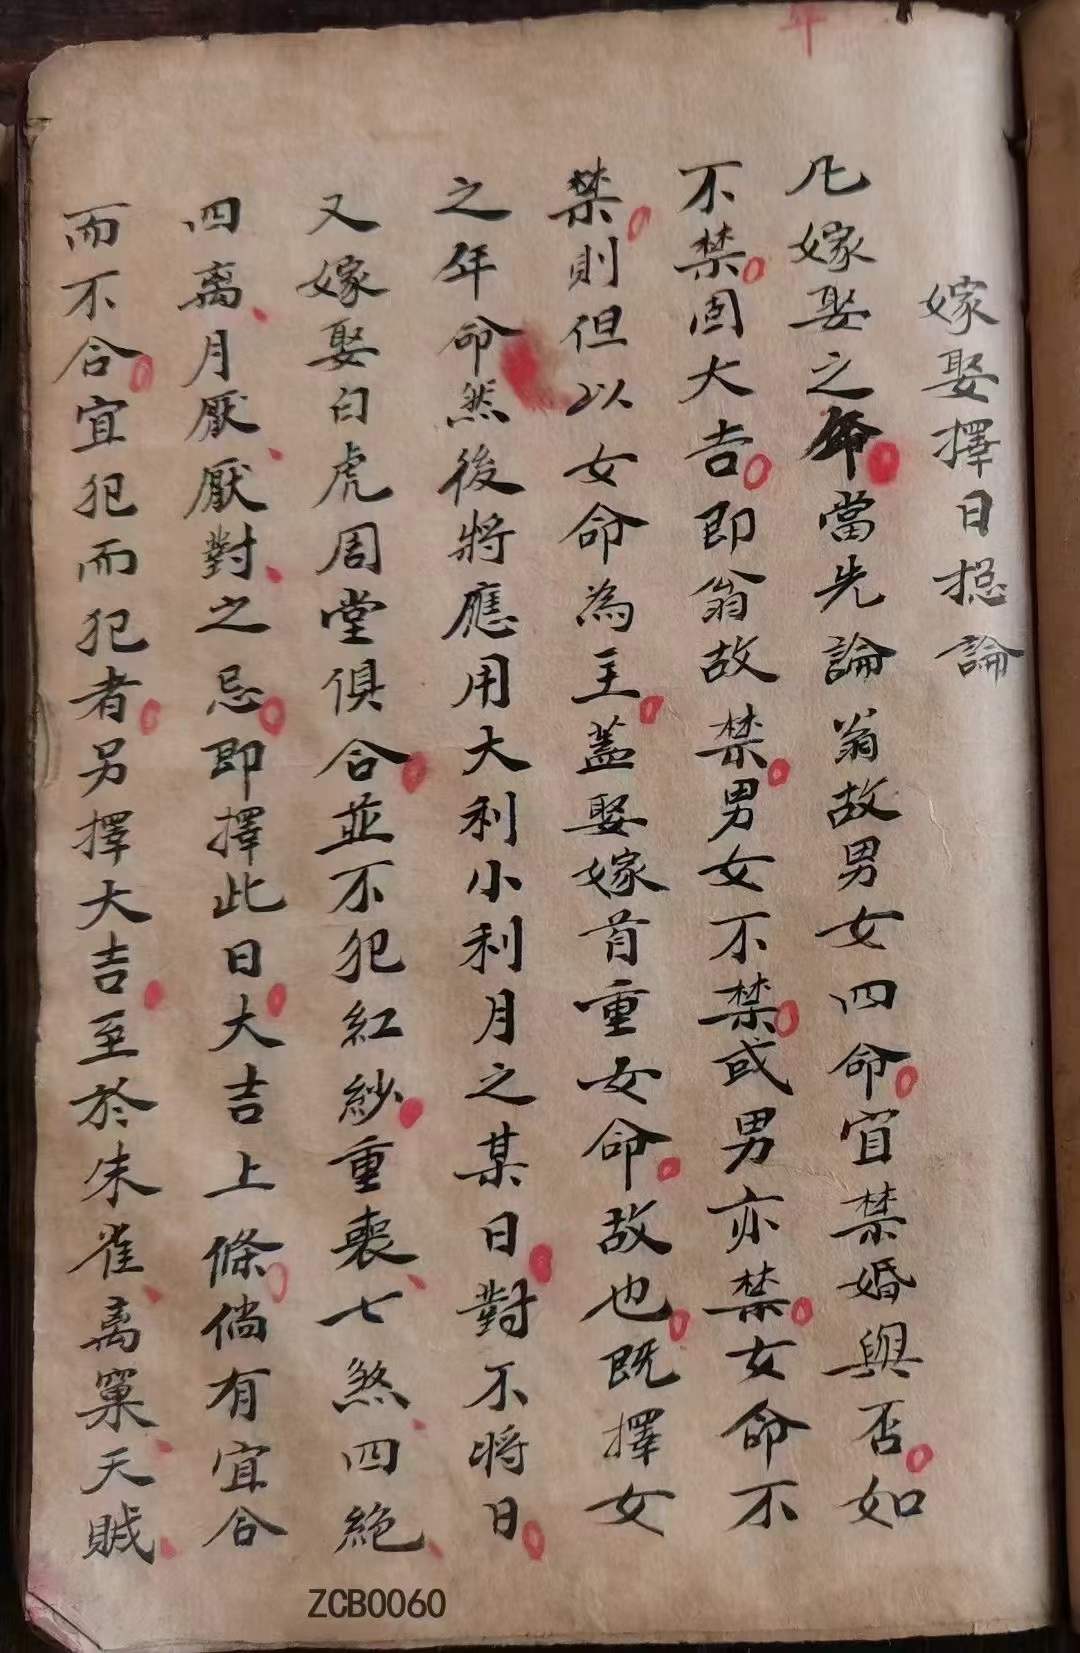 年
嫁娶擇日揔論
凡嫁娶之年當先論翁故男女四命宜禁婚與否如
不禁固大吉即翁故禁男女不禁或男亦禁女命不
禁則但以女命為主蓋娶嫁首重女命故也既擇女
之年命然後將應用大利小利月之某日對不將日
又嫁娶白虎周堂俱合並不犯紅紗重喪七煞四絕
四离月厭厭對之忌即擇此日大吉上條倘有宜合
而不合宜犯而犯者另擇大吉至於朱雀离窠天賊
ZCB0060